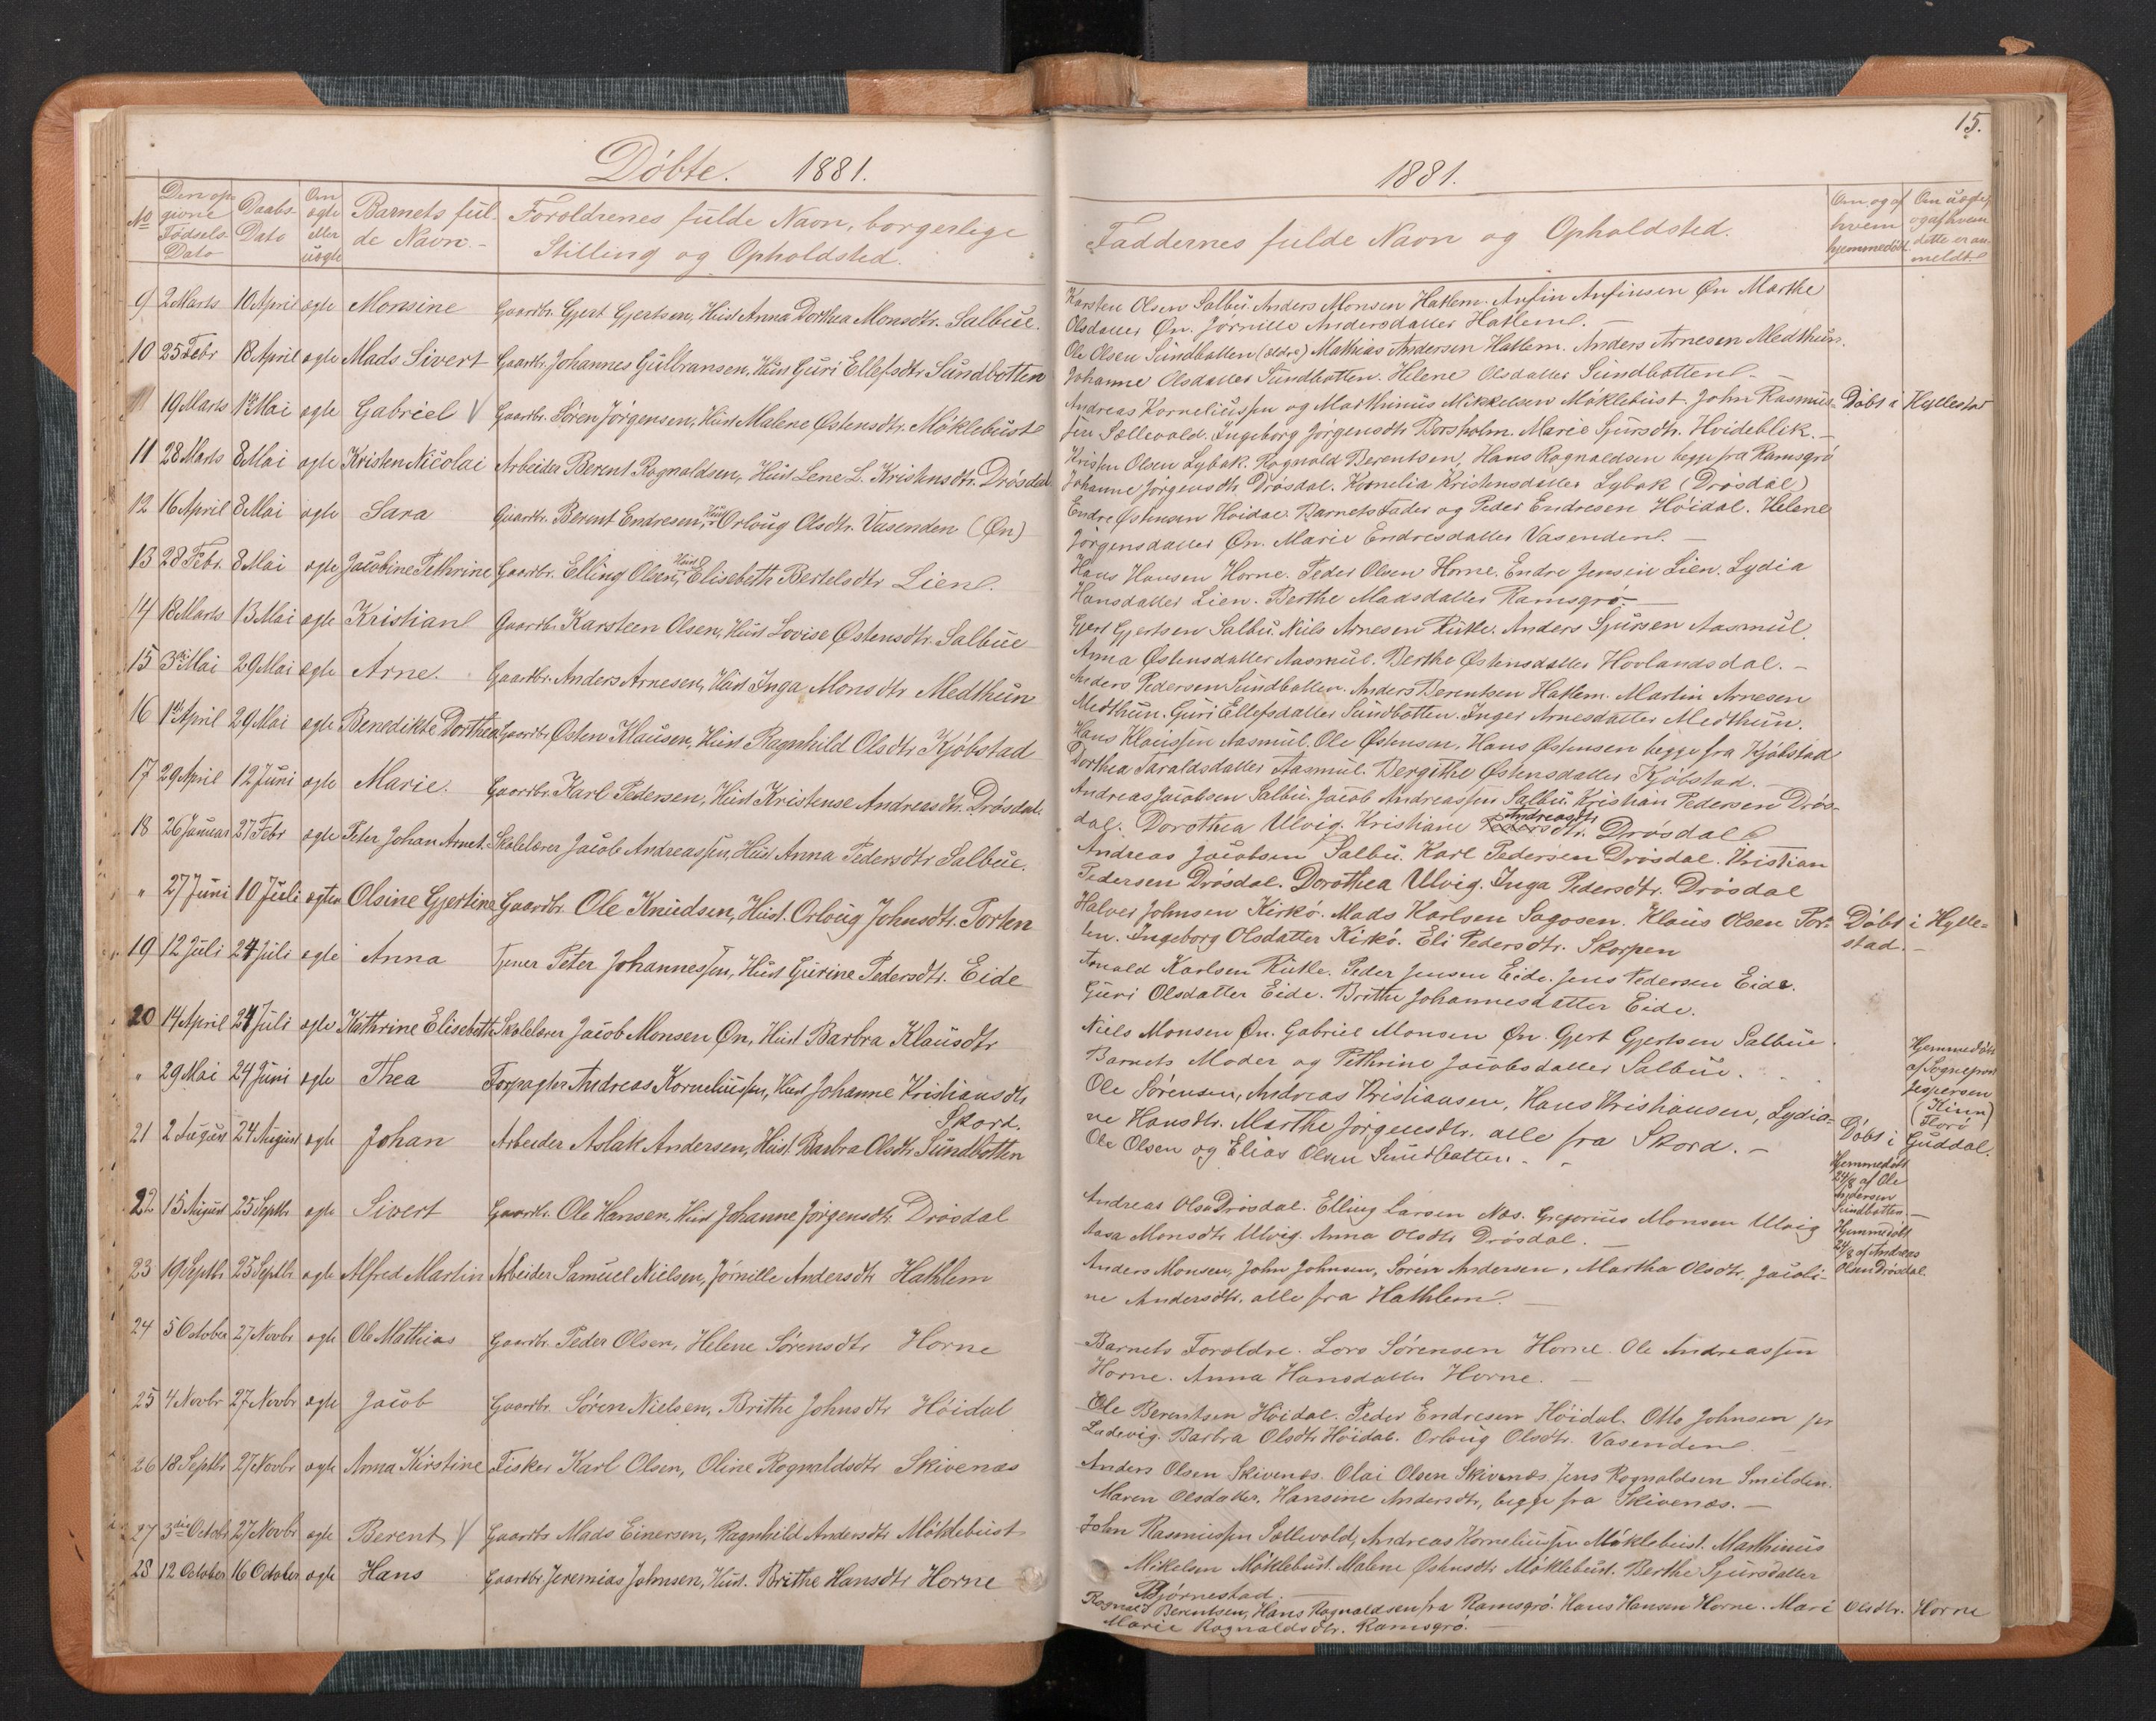 Döbte. 1881.
No
Den op-
givne
Födsels-
Dato
Daabs-
Dato
Om
ægte
eller
uægte
Barnets ful-
de Navn.
Foroldrenes fulde Navn, borgerlige
Stilling og Opholdsted.
9 2 Marts 10 April ægte Monsine Gaardbr. Gjert Gjertsen, Hust Anna Dorthea Monsdtr. Salbue.
10 25 Febr 18 April ægte Mads Sivert Gaardbr. Johannes Gulbransen, Hust Guri Ellefsdtr Sundbotten
19 Marts 1ste Mai ægte Gabriel V Gaardbr. Sören Jörgensen, Hust Malene Østensdtr. Möklebust
11 28 Marts 8 Mai ægte Kristen Nicolai Arbeider Berent Rognaldsen, Hust Lene L. Kristensdtr. Drösdal
12 16 April 8 Mai ægte Sara Gaardbr. Berent Endresen, Hust Orloug Olsdtr. Vasenden (Øn)
13 28 Febr. 8 Mai ægte Jacobine Pethrine Gaardbr. Elling Olsen, Hust Elisebeth Bertelsdtr Lien.
14 18 Marts 13 Mai ægte Kristian Gaardbr. Karsteen Olsen, Hust Lovise Østensdtr. Salbue
15 3die Mai 29 Mai ægte Arne. Gaardbr. Anders Arnesen, Hust Inga Monsdtr Medthun
16 1ste April 29 Mai ægte Benedikte Dorthea Gaardbr. Østen Klausen, Hust Ragnhild Olsdtr Kjöbstad
17 29 April 12 Juni ægte Marie. Gaardbr. Karl Pedersen, Hust Kristense Andreasdtr. Drösdal.
18 26 Januar 27 Febr ægte Peter Johan Arnet. Skolelærer Jacob Andreassen, Hust Anna Pedersdtr Salbue.
" 27 Juni 10 Juli ægte Olsine Gjertine Gaardbr. Ole Knudsen, Hust. Orloug Johnsdtr. Porten
19 12 Juli 24 Juli ægte Anna Tjener Peter Johannessen, Hust Gurine Pedersdtr. Eide
20 14 April 24 Juli ægte Kathrine Elisebeth Skolelærer Jacob Monsen Øn, Hust Barbra Klausdtr
" 29 Mai 24 Juni ægte Thea Forpagter Andreas Korneliussen, Hust Johanne Kristiansdtr
Skord.
21 2 August 24 August ægte Johan Arbeider Aslak Andersen, Hust Barbra Olsdtr Sundbotten
22 15 August 25 Septbr ægte Sivert Gaardbr. Ole Hansen, Hust Johanne Jörgensdtr Drösdal
23 19 Septbr 25 Septbr ægte Alfred Martin Arbeider Samuel Nielsen, Jörnille Andersdtr Hathlem
24 5 October 27 Novbr ægte Ole Mathias Gaardbr. Peder Olsen, Helene Sörensdtr Horne
25 4 Novbr 27 Novbr ægte Jacob Gaardbr. Sören Nielsen, Brithe Johnsdtr Höidal
26 18 Septbr 27 Novbr ægte Anna Kirstine Fisker Karl Olsen, Oline Rognaldsdtr Skivenæs
27 3die Octobr 27 Novbr ægte Berent V Gaardbr Mads Einersen, Ragnhild Andersdtr Möklebust
28 12 October 16 October ægte Hans Gaardbr Jeremias Johnsen, Hust. Brithe Hansdtr Horne
15.
1881.
Faddernes fulde Navn og Opholdsted.
Om, og af
hvem
hjemmedöbt.
Om uægte,
og af hvem
dette er an-
meldt.
Karsten Olsen Salbu. Anders Monsen Hatlem. Anfin Anfinsen Øn Marthe
Olsdatter Øn. Jörnille Andersdatter Hatlem.
Ole Olsen Sundbotten (ældre) Mathias Andersen Hatlem. Anders Arnesen Medthun.
Johanne Olsdatter Sundbotten. Helene Olsdatter Sundbotten.
Andreas Korneliussen og Marthinus Mikkelsen Möklebust. John Rasmus- Döbt i Hyllestad
sen Sællevold. Ingeborg Jörgensdtr Borsholm. Marie Sjursdtr. Hvideblik.
Kristen Olsen Lybæk. Rognald Berentsen, Hans Rognaldsen begge fra Ramsgrö
Johanne Jörgensdtr Drösdal. Kornelia Kristensdatter Lybæk (Drösdal)
Endre Østensen Höidal. Barnets Fader og Peder Endresen Höidal. Helene
Jörgensdatter Øn. Marie Endresdatter Vasenden.
Hans Hansen Horne. Peder Olsen Horne. Endre Jensen Lien. Lydia
Hansdatter Lien. Berthe Madsdatter Ramsgrö.
Gjert Gjertsen Salbu. Niels Arnesen Risle. Anders Sjursen Aasmul.
Anna Østensdatter Aasmul. Berthe Østensdatter Hovlandsdal.
Anders Pedersen Sundbotten. Anders Berentsen Hatlem. Martin Arnesen
Medthun. Guri Ellefsdatter Sundbotten. Inger Arnesdatter Medthun.
Hans Klaussen Aasmul. Ole Østensen, Hans Østensen begge fra Kjöbstad
Dorthea Taraldsdatter Aasmul. Bergithe Østensdatter Kjöbstad.
Andreas Jacobsen Salbu. Jacob Andreassen Salbu. Kristian Pedersen Drös-
dal. Dorothea Ulvig. Kristiane Andreasdtr Drösdal
Andreas Jacobsen Salbu. Karl Pedersen Drösdal. Kristian
Pedersen Drösdal. Dorothea Ulvig. Inga Pedersdtr. Drösdal
Halver Johnsen Kirkö. Mads Karlsen Sagosen. Klaus Olsen Por- Döbt i Hylle-
ten. Ingeborg Olsdatter Kirkö. Eli Pedersdtr. Skorpen stad.
Karlsen Risle. Peder Jensen Eide. Jens Pedersen Eide.
Guri Olsdatter Eide. Brithe Johannesdatter Eide.
Niels Monsen Øn. Gabriel Monsen Øn. Gjert Gjertsen Salbue.
Barnets Moder og Pethrine Jacobsdatter Salbue.
Hjemmedöbt
af Sognepræst
Jespersen
(Kinn)
Florö
Ole Sörensen, Andreas Kristiansen, Hans Kristiansen, Lydia-
ne Hansdtr. Marthe Jörgensdtr. alle fra Skord. Döbt i Guddal.
Ole Olsen og Elias Olsen Sundbotten.
Hjemmedöbt
24/8 af Ole
Andersen
Sundbotten.
Andreas Olsen Drösdal. Elling Larsen Næs. Gregorius Monsen Ulvig
Aasa Monsdtr Ulvig. Anna Olsdtr Drösdal.
Hjemmedöbt
24/8 af Andreas
Olsen Drösdal.
Anders Monsen, John Johnsen, Sören Andersen, Martha Olsdtr, Jacobi-
ne Andersdtr. alle fra Hathlem.
Barnets Foroldre. Lars Sörensen Horne. Ole Andreassen
Horne. Anna Hansdatter Horne.
Ole Berentsen Höidal. Peder Endresen Höidal. Otto Johnsen
Ladevig. Barbra Olsdtr Höidal. Orloug Olsdtr. Vasenden
Anders Olsen Skivenæs. Olai Olsen Skivenæs. Jens Rognaldsen Smilden.
Maren Olsdatter, Hansine Andersdtr, begge fra Skivenæs.
John Rasmussen Sællevold, Andreas Korneliussen Möklebust. Marthinus
Mikelsen Möklebust. Malene Østensdtr Möklebust. Berthe Sjursdatter
Björnestad.
Rognald Berentsen, Hans Rognaldsen fra Ramsgrö. Hans Hansen Horne. Mari Olsdtr. Horne
Marie Rognaldsdtr. Ramsgrö.